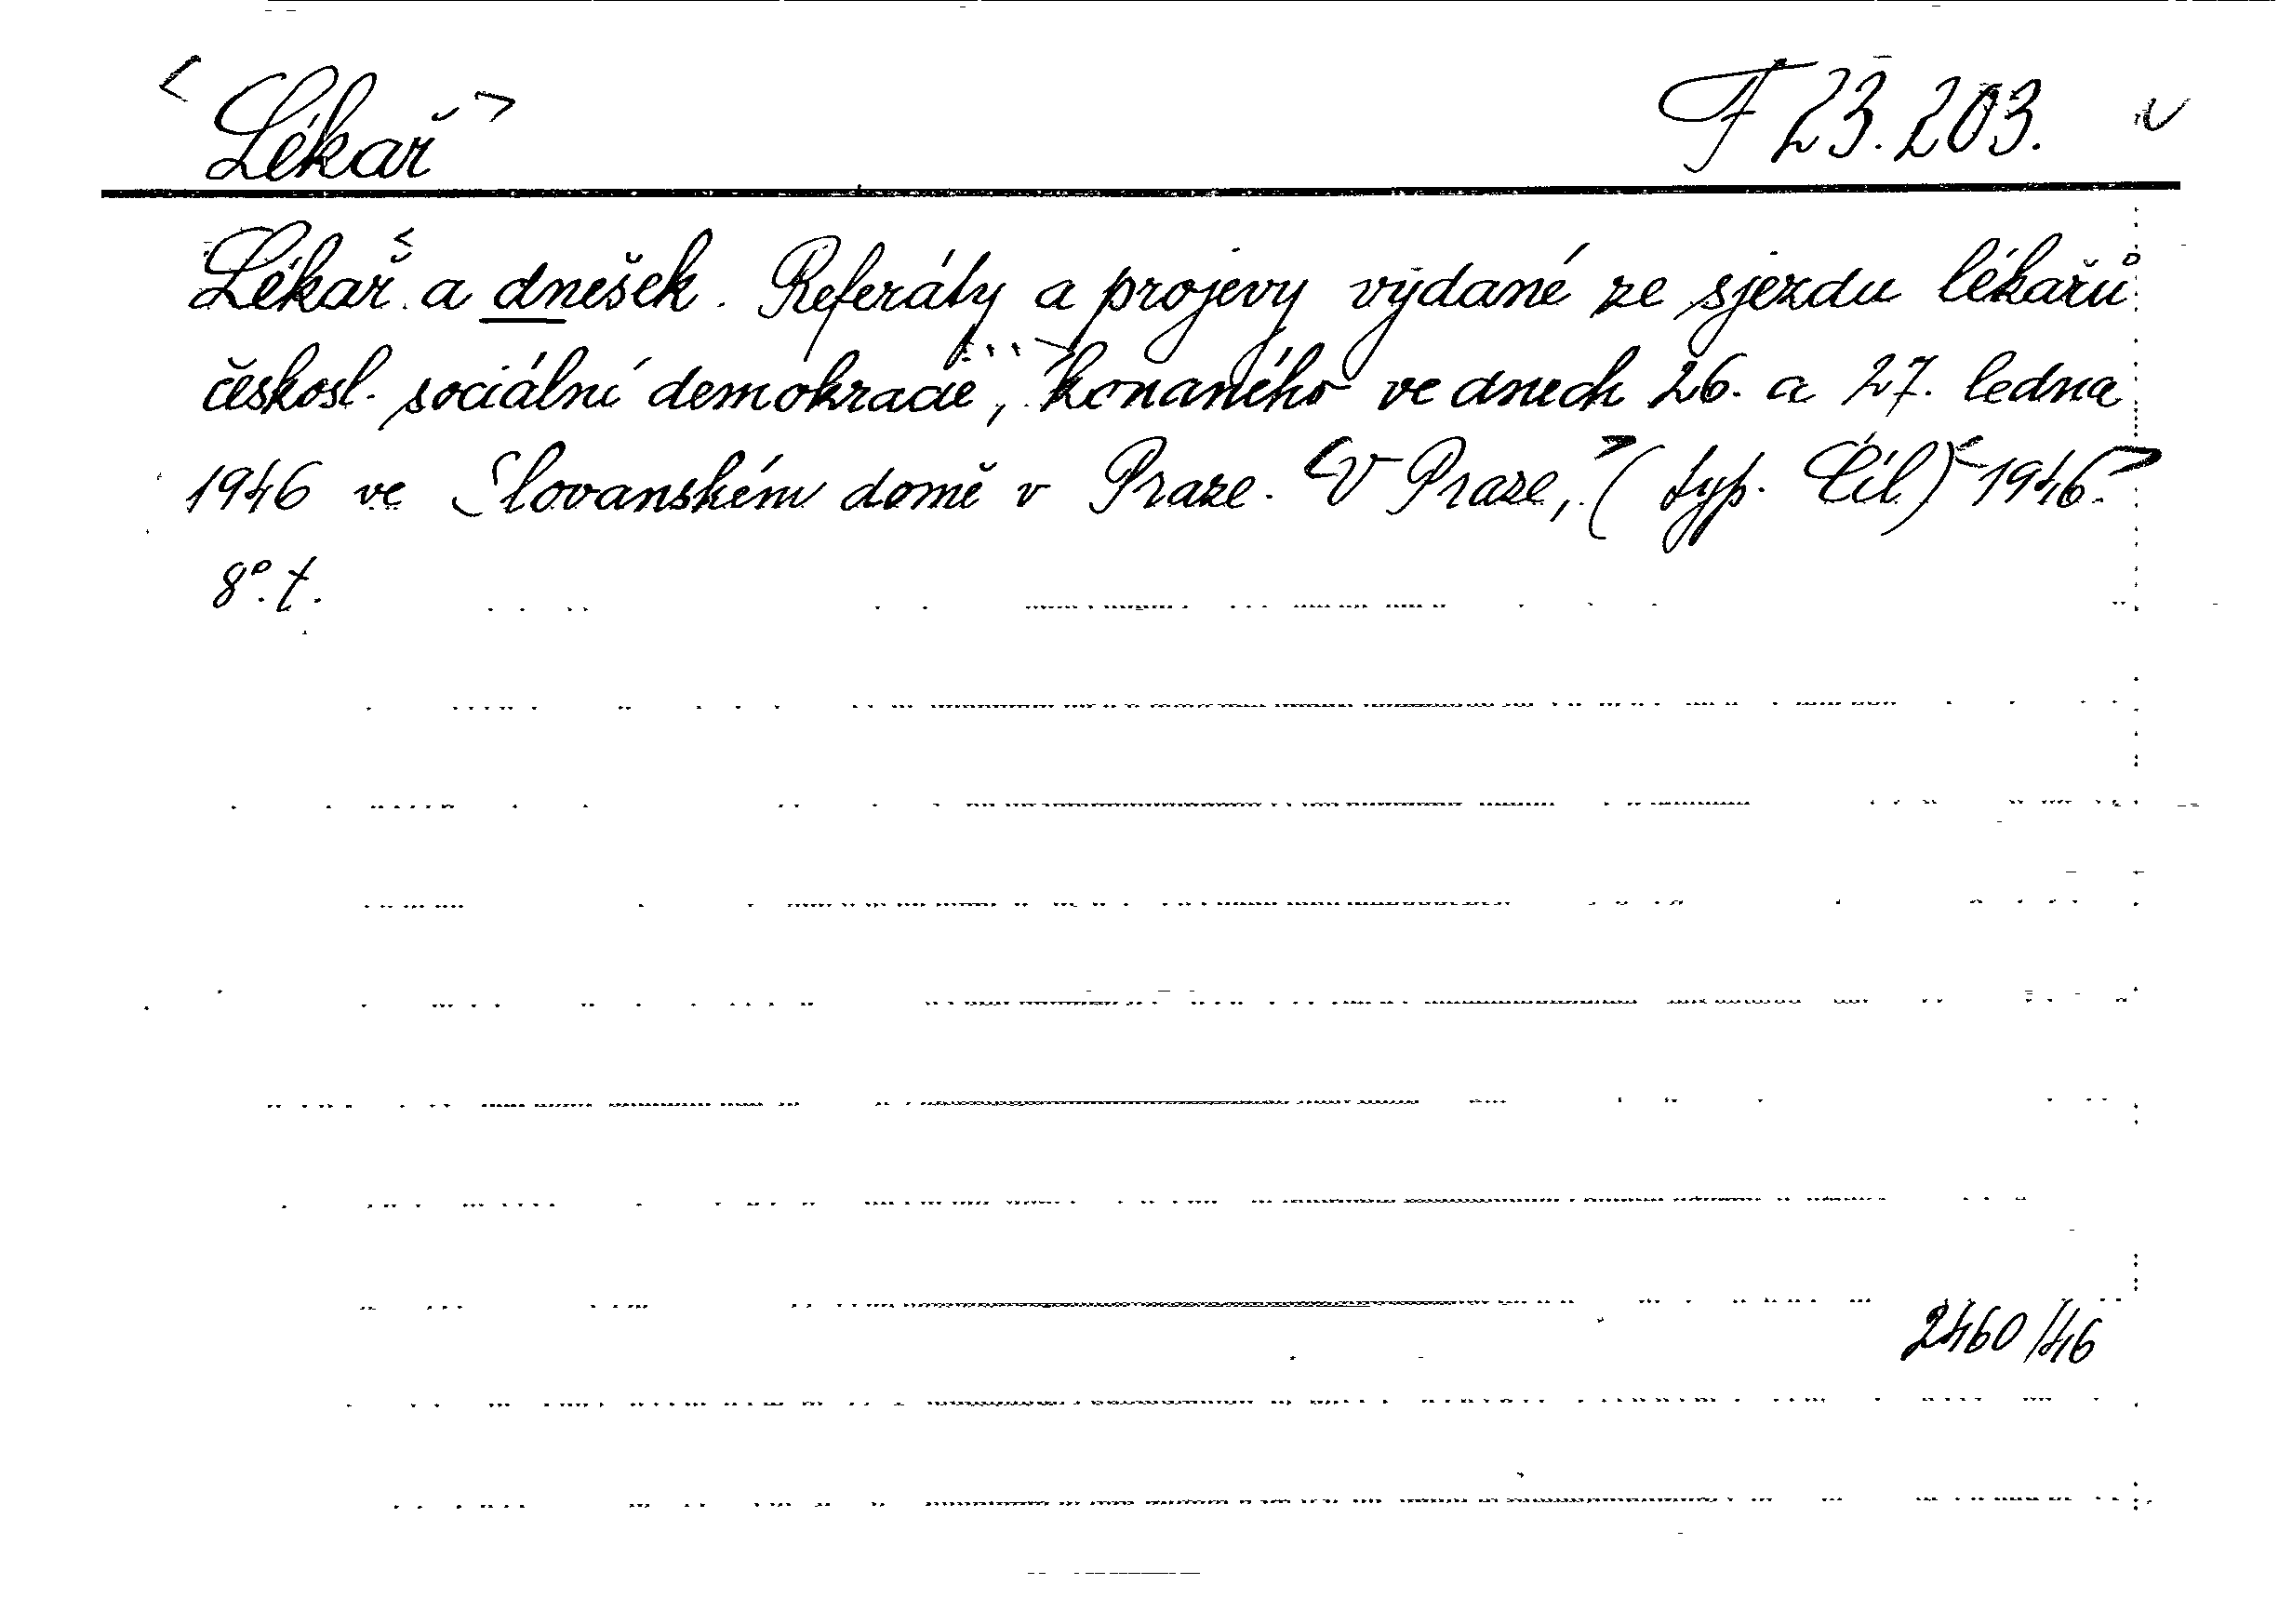 <Lékař> F 23.203.
Lékař a dnešek. Referáty a projevy vydané ze sjezdu lékařů
českosl. sociální demokracie, konaného ve dnech 26. a 27. ledna
1946 ve Slovanském domě v Praze. <V Praze,> (typ. Cíl) <1946.>
8°. t.
2460/46